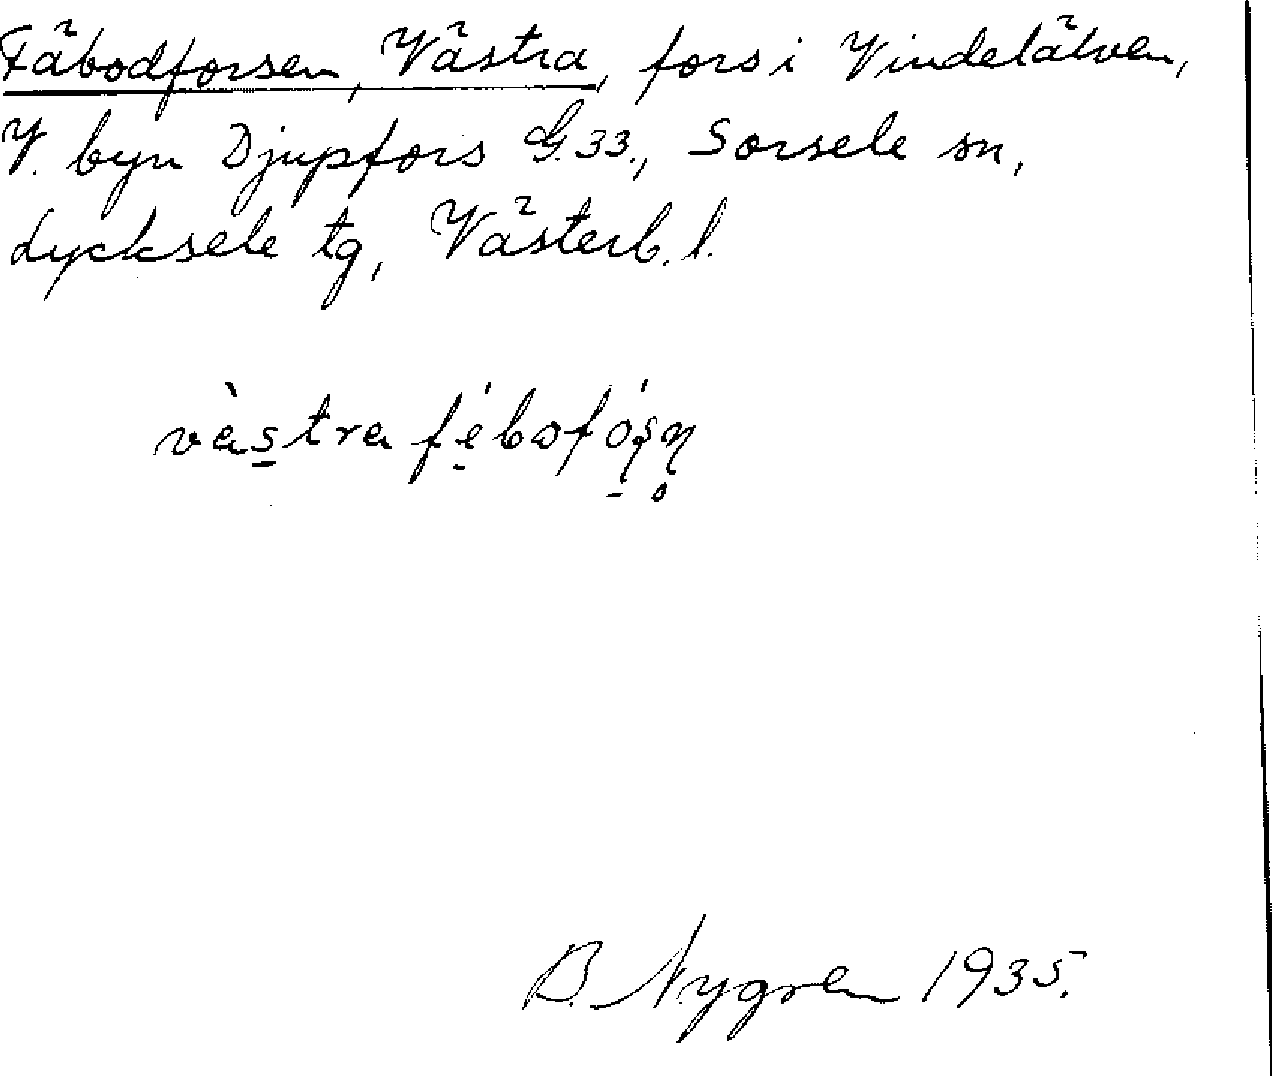 Fäbodforsen, Västra, fors i Vindelälven,
V. byn Djupfors G.33., Sorsele sn,
Lycksele tg, Västerb. l.
vàs̱tra fé̱bofó̱ʂn̥
B. Nygren 1935.